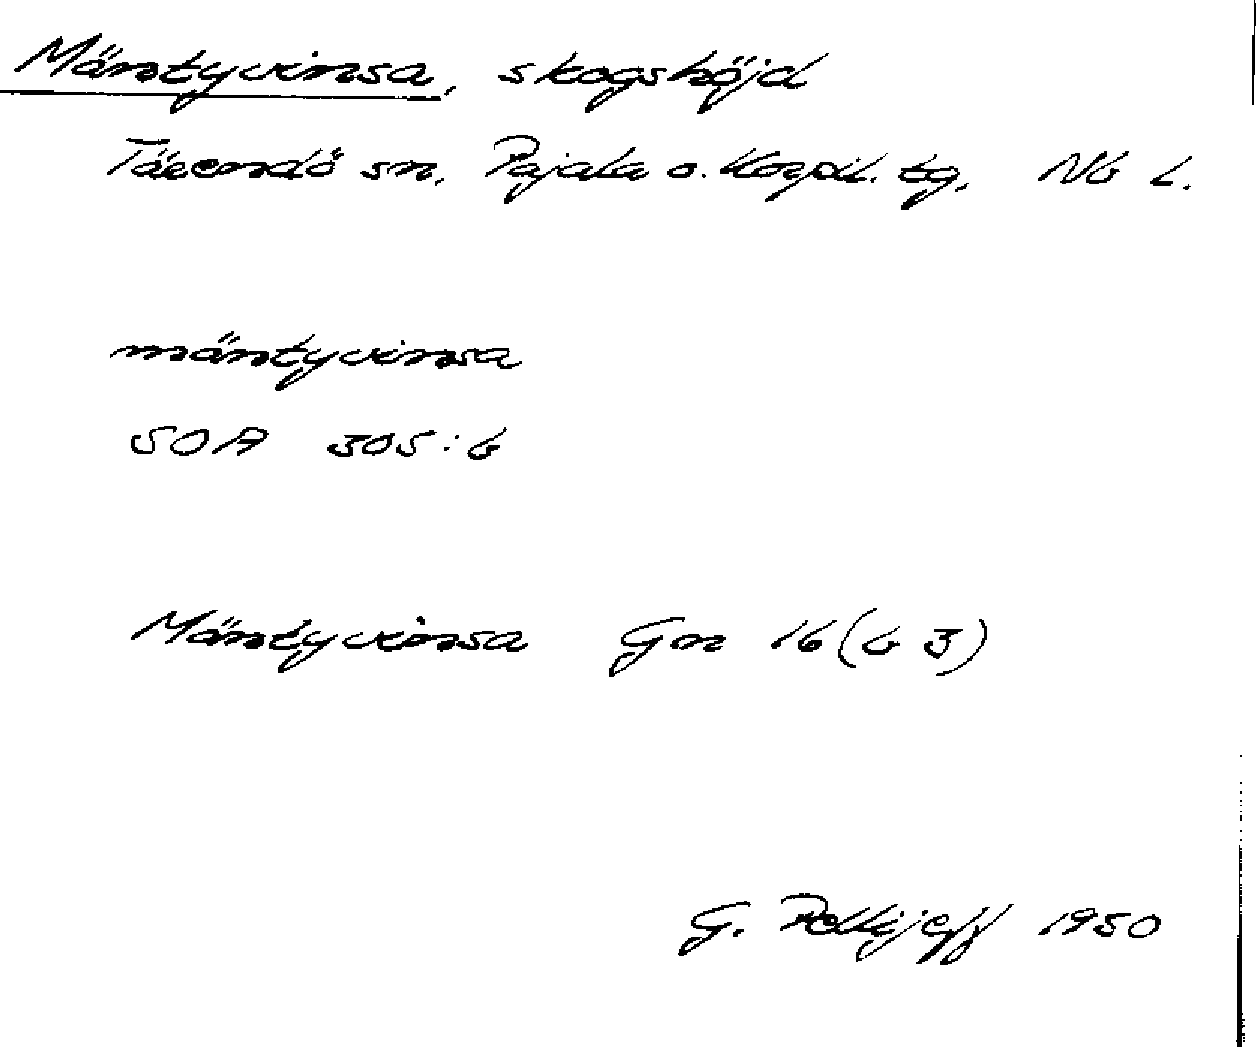 Mäntyvinsa, skogshöjd
Tärendö sn. Pajala o. Korpil. tg. Nb l.
mäntyvinsa
SOA 305:6
Mäntyvinsa Gn 16 (b 3)
G. Pellijeff 1950